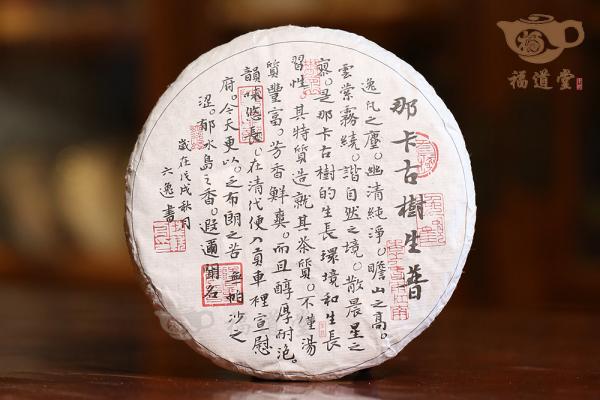 福道堂
那卡古樹生普
逸凡之塵。幽清純淨。瞻山之高。
雲棠霧繞。諧自然之境。散晨星之
寥。是那卡古樹的生長環境和生長
習性其特質造就其茶質。不僅湯
質豐富。芳香鮮爽。而且醇厚耐泡。
韻味悠長。在清代便入貢車裡宣慰
府。今天更以。之布朗之苦無帕沙之
澀。郁水島之香。遐邇聞名
歲在戊戌秋月
六逸書